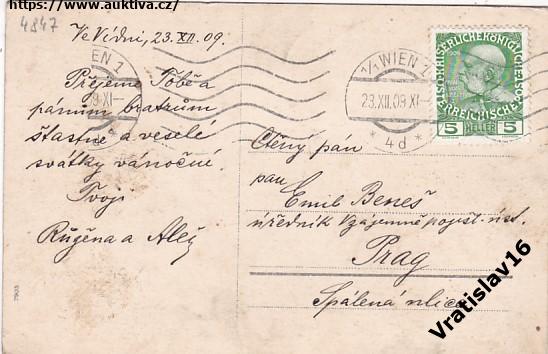 https://www.auktiva.cz/
4847
Ve Vídni, 23. XII. 09.
Přejeme Tobě a
pánům bratrům
šťastné a veselé
svátky vánoční.
Tvoji
Růžena a
WIEN 1
9 XI-
d
1/1 WIEN 1
23.XII.09 XI-
* 4d *
5 HELLER 5
Ctěný pán
pan
Emil Beneš
úředník vzájemné pojišť. úst.
Prag
Spálená ulice
Vratislav16